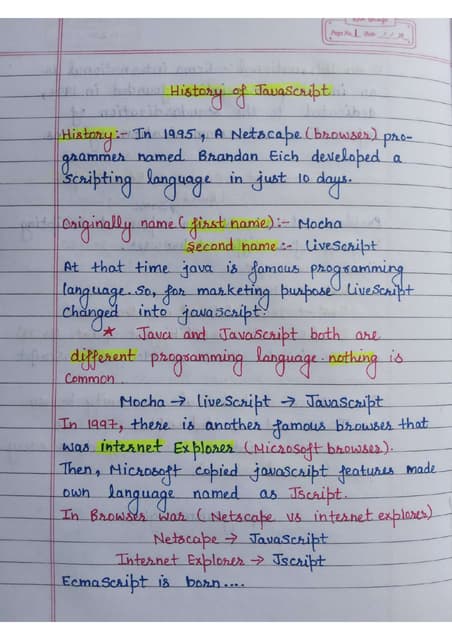 Page No. 1 Date
History of JavaScript
History :- In 1995, A Netscape (browser) pro-
grammer named Brandan Eich developed a
scripting language in just 10 days.
Originally name ( first name) :- Mocha
Second name :- LiveScript
At that time java is famous programming
language. So, for marketing purpose LiveScript
changed into javascript.
* Java and JavaScript both are
different programming language. nothing is
common.
Mocha → liveScript → JavaScript
In 1997, there is another famous browser that
was internet Explorer (Microsoft browser).
Then, Microsoft copied javascript features made
own language named as Jscript.
In Browser war ( Netscape vs internet explorer)
Netscape → JavaScript
Internet Explorer → Jscript
EcmaScript is born....